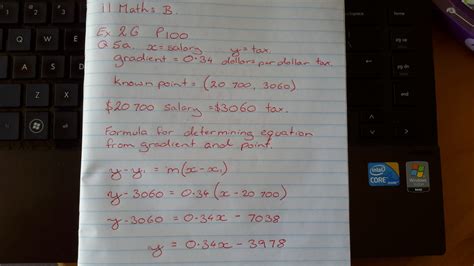 11 Maths B.
Ex 2G P100
Q 5a. x = salary y = tax.
gradient = 0.34 dollars per dollar tax.
known point = (20 700, 3060)
$20 700 salary = $3060 tax.
Formula for determining equation
from gradient and point.
y - y₁ = m(x - x₁)
y - 3060 = 0.34(x - 20 700)
y - 3060 = 0.34x - 7038
y = 0.34x - 3978
intel
CORE
Windows